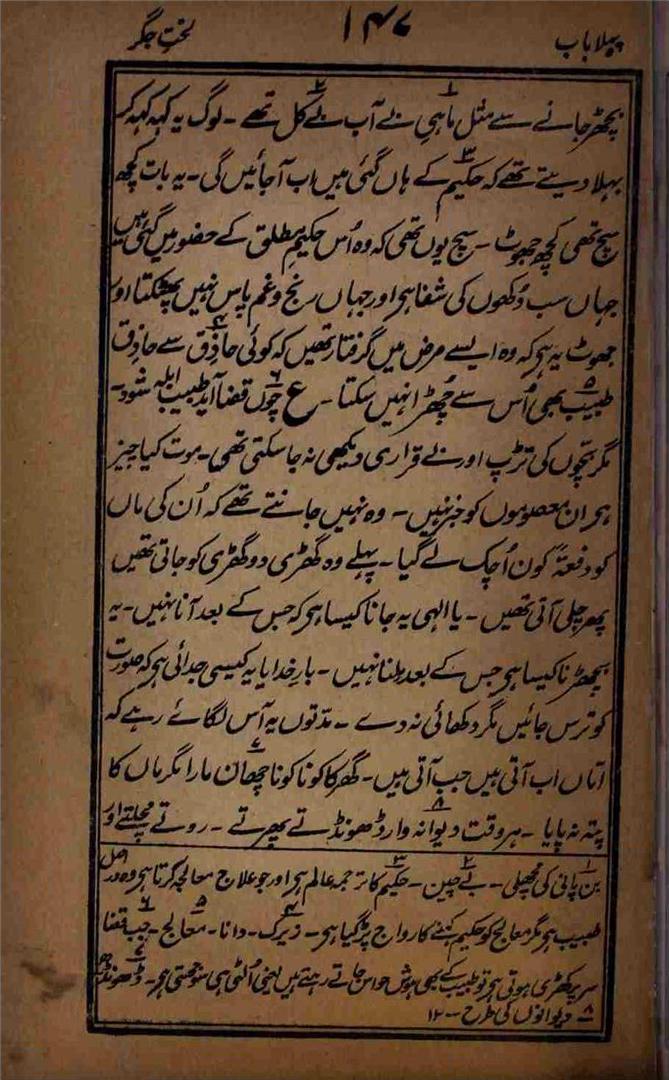 پہلا باب ۱۴۷ لختِ جگر
بچھڑ جانے سے مثل ماہیِ بے آب بے کل تھے ۔ لوگ یہ کہہ کہہ کر
بہلا دیتے تھے کہ حکیم کے ہاں گئی ہیں اب آ جائیں گی ۔ یہ بات کچھ
سچ تھی کچھ جھوٹ ۔ سچ یوں تھی کہ وہ اُس حکیمِ مطلق کے حضور میں گئی ہیں
جہاں سب دُکھوں کی شفا ہی اور جہاں رنج و غم پاس نہیں پھٹکتا اور
جھوٹ یہ ہی کہ وہ ایسے مرض میں گرفتار تھیں کہ کوئی حاذق سے حاذِق
طبیب بھی اُس سے چُھڑا نہیں سکتا ۔ ع چوں قضا آید طبیب ابلہ شود ۔
مگر بچّوں کی تڑپ اور بے قراری دیکھی نہ جا سکتی تھی ۔ موت کیا چیز
ہی ان معصوموں کو خبر نہیں ۔ وہ نہیں جانتے تھے کہ اُن کی ماں
کو دفعۃً کون اُچک لے گیا ۔ پہلے وہ گھڑی دو گھڑی کو جاتی تھیں
پھر چلی آتی تھیں ۔ یا الہی یہ جانا کیسا ہی کہ جس کے بعد آنا نہیں ۔ یہ
بچھڑنا کیسا ہی جس کے بعد ملنا نہیں ۔ بارِ خدایا یہ کیسی جدائی ہی کہ صورت
کو ترس جائیں مگر دکھائی نہ دے ۔ مدّتوں یہ آس لگائے رہے کہ
امّاں اب آتی ہیں جب آتی ہیں ۔ گھر کا کونا کونا چھان مارا مگر ماں کا
پتہ نہ پایا ۔ ہر وقت دیوانہ وار ڈھونڈتے پھرتے ۔ روتے مچلتے اور
۱ بن پانی کی مچھلی ۔ ۲ بے چین ۔ ۳ حکیم کا ترجمہ عالم ہی اور جو علاج معالجہ کرتا ہی وہ در اصل
طبیب ہی مگر معالج کو حکیم کہنے کا رواج پڑ گیا ہی ۔ ۴ زیرک ۔ دانا ۔ ۵ معالج ۔ ۶ جب قضا
سر پر کھڑی ہوتی ہی تو طبیب کے بھی ہوش حواس جاتے رہتے ہیں یعنی اُلٹی ہی سوجھتی ہی ۔ ۷ ڈھونڈھا
۸ دیوانوں کی طرح ۔ ۱۲